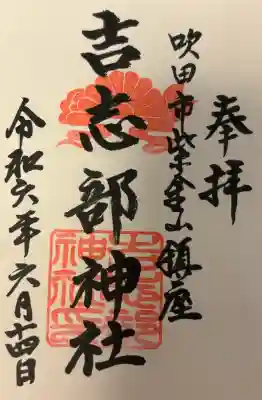 奉拝
吹田市紫金山鎮座
吉志部神社
令和六年六月十四日